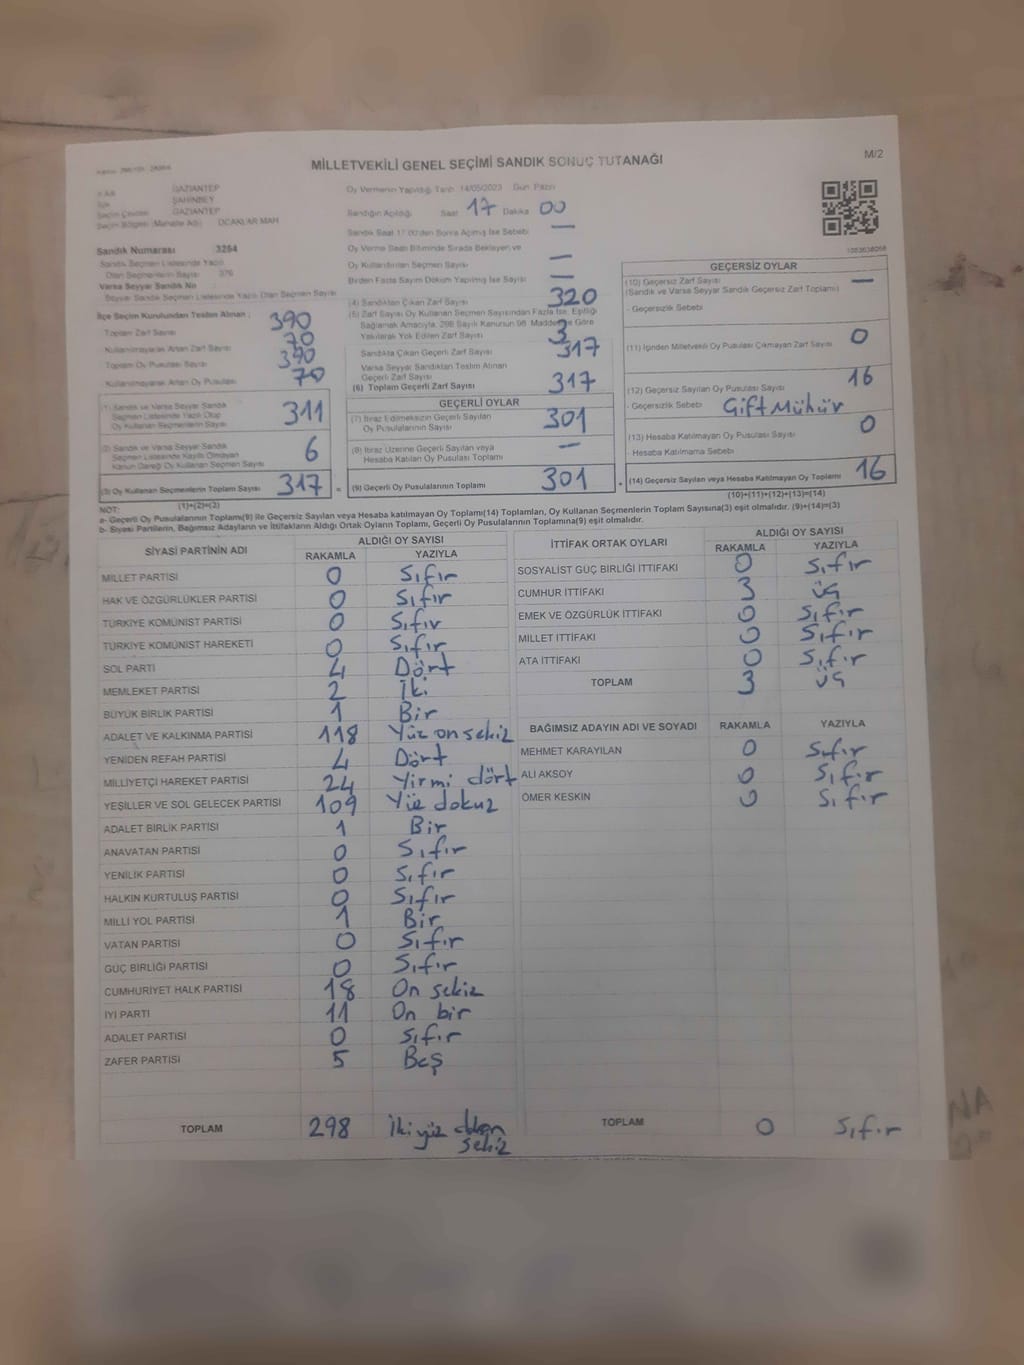 MİLLETVEKİLİ GENEL SEÇİMİ SANDIK SONUÇ TUTANAĞI
M/2
GAZİANTEP
ŞAHİNBEY
Seçim Çevresi GAZİANTEP
Seçim Bölgesi (Mahalle Adı) OCAKLAR MAH
Sandık Numarası 3264
Sandık Seçmen Listesinde Yazılı
Olan Seçmenlerin Sayısı 376
Varsa Seyyar Sandık No
Seyyar Sandık Seçmen Listesinde Yazılı Olan Seçmen Sayısı
İlçe Seçim Kurulundan Teslim Alınan ;
Toplam Zarf Sayısı 390
Kullanılmayarak Artan Zarf Sayısı 70
Toplam Oy Pusulası Sayısı 390
Kullanılmayarak Artan Oy Pusulası 70
(1) Sandık ve Varsa Seyyar Sandık
Seçmen Listesinde Yazılı Olup
Oy Kullanan Seçmenlerin Sayısı 311
(2) Sandık ve Varsa Seyyar Sandık
Seçmen Listesinde Kayıtlı Olmayan
Kanun Gereği Oy Kullanan Seçmen Sayısı 6
(3) Oy Kullanan Seçmenlerin Toplam Sayısı 317 =
(1)+(2)=(3)
Oy Vermenin Yapıldığı Tarih 14/05/2023 Gün Pazar
Sandığın Açıldığı Saat 17 Dakika 00
Sandık Saat 17 00'den Sonra Açılmış İse Sebebi —
Oy Verme Saati Bitiminde Sırada Bekleyen ve
Oy Kullandırılan Seçmen Sayısı —
Birden Fazla Sayım Döküm Yapılmış İse Sayısı —
(4) Sandıktan Çıkan Zarf Sayısı 320
(5) Zarf Sayısı Oy Kullanan Seçmen Sayısından Fazla İse, Eşitliği
Sağlamak Amacıyla, 298 Sayılı Kanunun 98. Maddesine Göre
Yakılarak Yok Edilen Zarf Sayısı 3
Sandıkta Çıkan Geçerli Zarf Sayısı 317
Varsa Seyyar Sandıktan Teslim Alınan
Geçerli Zarf Sayısı
(6) Toplam Geçerli Zarf Sayısı 317
GEÇERLİ OYLAR
(7) İtiraz Edilmeksizin Geçerli Sayılan
Oy Pusulalarının Sayısı 301
(8) İtiraz Üzerine Geçerli Sayılan veya
Hesaba Katılan Oy Pusulası Toplamı —
(9) Geçerli Oy Pusulalarının Toplamı 301 +
GEÇERSİZ OYLAR
(10) Geçersiz Zarf Sayısı —
(Sandık ve Varsa Seyyar Sandık Geçersiz Zarf Toplamı)
- Geçersizlik Sebebi
(11) İçinden Milletvekili Oy Pusulası Çıkmayan Zarf Sayısı 0
(12) Geçersiz Sayılan Oy Pusulası Sayısı 16
- Geçersizlik Sebebi Çift Mühür
(13) Hesaba Katılmayan Oy Pusulası Sayısı 0
- Hesaba Katılmama Sebebi
(14) Geçersiz Sayılan veya Hesaba Katılmayan Oy Toplamı 16
(10)+(11)+(12)+(13)=(14)
NOT:
a- Geçerli Oy Pusulalarının Toplamı(9) ile Geçersiz Sayılan veya Hesaba katılmayan Oy Toplamı(14) Toplamları, Oy Kullanan Seçmenlerin Toplam Sayısına(3) eşit olmalıdır. (9)+(14)=(3)
b- Siyasi Partilerin, Bağımsız Adayların ve İttifakların Aldığı Ortak Oyların Toplamı, Geçerli Oy Pusulalarının Toplamına(9) eşit olmalıdır.
SİYASİ PARTİNİN ADI ALDIĞI OY SAYISI
RAKAMLA YAZIYLA
MİLLET PARTİSİ 0 Sıfır
HAK VE ÖZGÜRLÜKLER PARTİSİ 0 Sıfır
TÜRKİYE KOMÜNİST PARTİSİ 0 Sıfır
TÜRKİYE KOMÜNİST HAREKETİ 0 Sıfır
SOL PARTİ 4 Dört
MEMLEKET PARTİSİ 2 İki
BÜYÜK BİRLİK PARTİSİ 1 Bir
ADALET VE KALKINMA PARTİSİ 118 Yüz on sekiz
YENİDEN REFAH PARTİSİ 4 Dört
MİLLİYETÇİ HAREKET PARTİSİ 24 Yirmi dört
YEŞİLLER VE SOL GELECEK PARTİSİ 109 Yüz dokuz
ADALET BİRLİK PARTİSİ 1 Bir
ANAVATAN PARTİSİ 0 Sıfır
YENİLİK PARTİSİ 0 Sıfır
HALKIN KURTULUŞ PARTİSİ 0 Sıfır
MİLLİ YOL PARTİSİ 1 Bir
VATAN PARTİSİ 0 Sıfır
GÜÇ BİRLİĞİ PARTİSİ 0 Sıfır
CUMHURİYET HALK PARTİSİ 18 On sekiz
İYİ PARTİ 11 On bir
ADALET PARTİSİ 0 Sıfır
ZAFER PARTİSİ 5 Beş
TOPLAM 298 İki yüz doksan
sekiz
İTTİFAK ORTAK OYLARI ALDIĞI OY SAYISI
RAKAMLA YAZIYLA
SOSYALİST GÜÇ BİRLİĞİ İTTİFAKI 0 Sıfır
CUMHUR İTTİFAKI 3 üç
EMEK VE ÖZGÜRLÜK İTTİFAKI 0 Sıfır
MİLLET İTTİFAKI 0 Sıfır
ATA İTTİFAKI 0 Sıfır
TOPLAM 3 üç
BAĞIMSIZ ADAYIN ADI VE SOYADI RAKAMLA YAZIYLA
MEHMET KARAYILAN 0 Sıfır
ALİ AKSOY 0 Sıfır
ÖMER KESKİN 0 Sıfır
TOPLAM 0 Sıfır